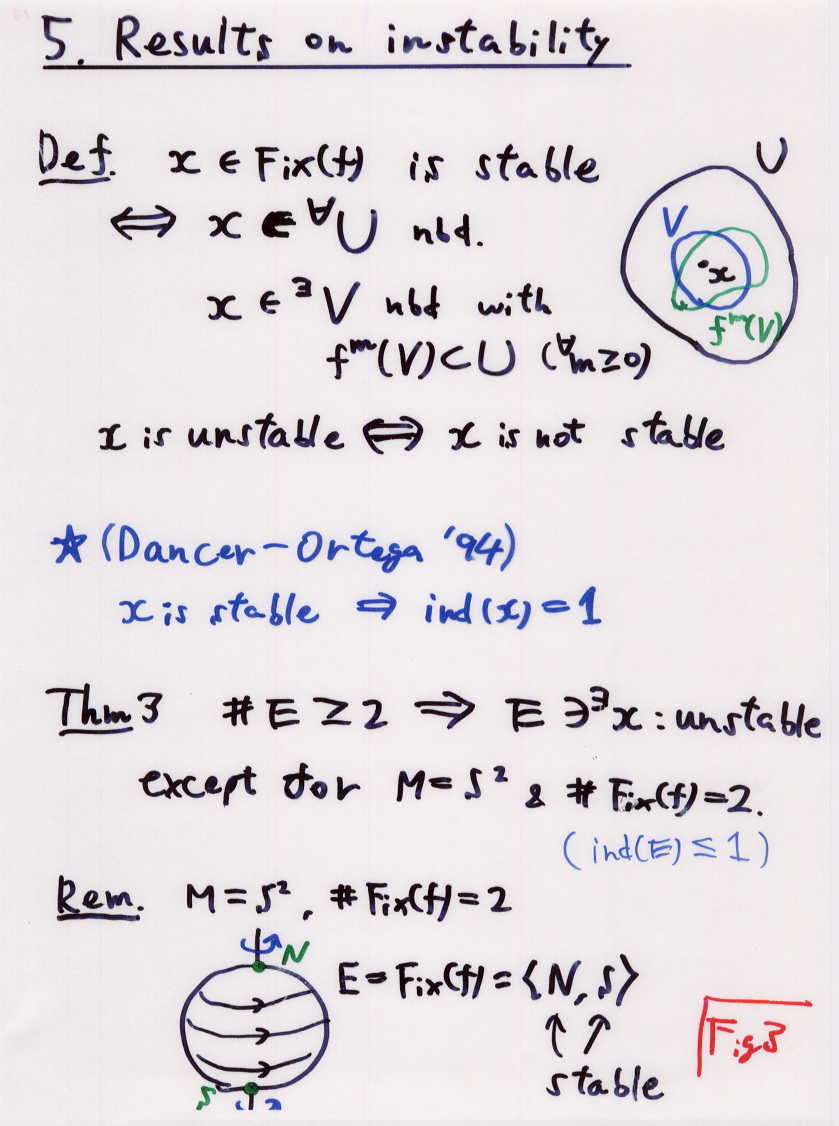 5. Results on instability
U
Def. x ∈ Fix(f) is stable
⇔ x ∈ ∀U nbd.
V
x
f^m(V)
x ∈ ∃V nbd with
f^m(V) ⊂ U (∀m ≥ 0)
x is unstable ⇔ x is not stable
☆ (Dancer-Ortega '94)
x is stable ⇒ ind(x) = 1
Thm 3 #E ≥ 2 ⇒ E ∋ ∃x : unstable
except for M = S² & # Fix(f) = 2.
(ind(E) ≤ 1)
Rem. M = S², # Fix(f) = 2
N
E = Fix(f) = {N, S}
Fig 3
stable
S